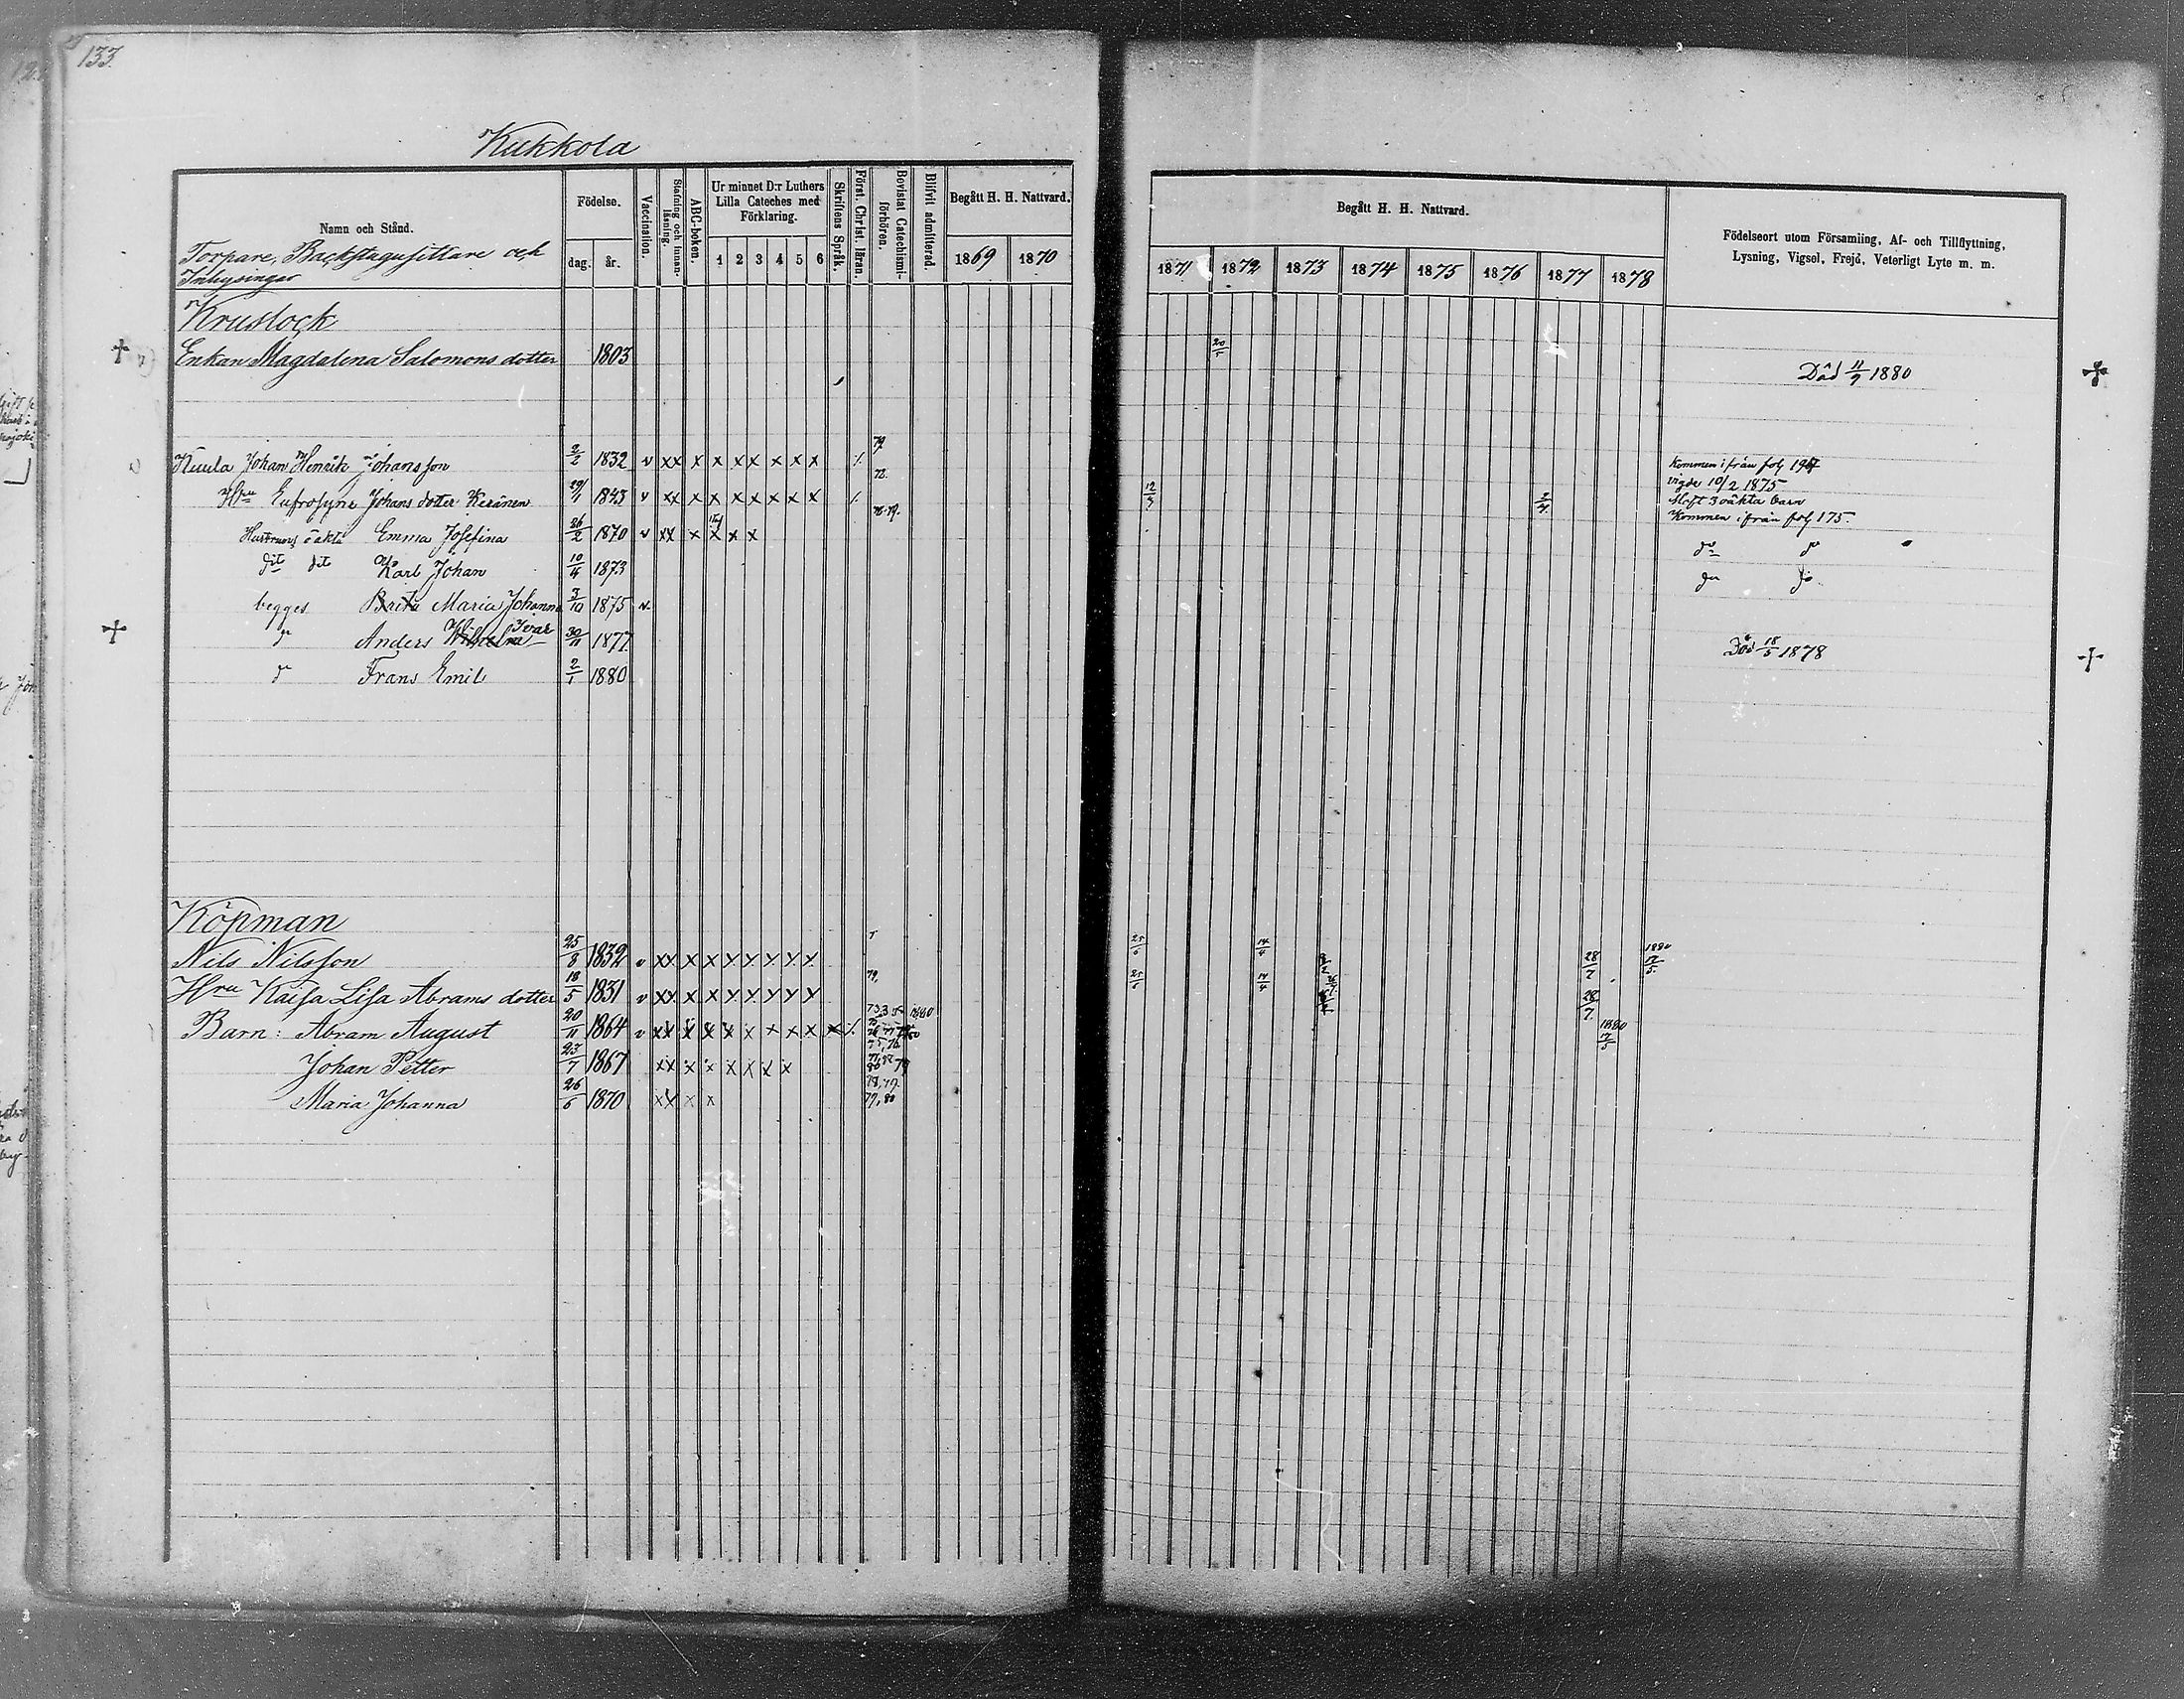 133.
Kukkola
Namn och Stånd.
Torpare, Backstugusittare och
Inhysingar
Födelse.
dag. år.
Vaccination.
Stafning och innan-läsning.
ABC-boken.
Ur minnet D:r Luthers
Lilla Cateches med
Förklaring.
1 2 3 4 5 6
Skriftens Språk.
Först. Christ. läran.
Bevistat Catechismi-förhören.
Blifvit admitterad.
Begått H. H. Nattvard.
1869 1870
Begått H. H. Nattvard.
1871 1872 1873 1874 1875 1876 1877 1878
Födelseort utom Församling, Af- och Tillflyttning,
Lysning, Vigsel, Frejd, Veterligt Lyte m. m.
Kruslock
Enkan Magdalena Salomons dotter 1803 20/5 Död 11/9 1880
Kuula Johan Henrik Johansson 2/2 1832 v xx x x x x x x x 79. Kommen ifrån fol 196
vigde 10/2 1875
Hru Eufrosyne Johans dotter Keränen 29/1 1843 v xx x x x x x x x 78. 12/3 Haft 3 oäkta barn
Kommen ifrån fol 175.
Hustruns oäkta Emma Josefina 26/2 1870 v xx x x x x 78.79. do do
dit dit Karl Johan 10/4 1873 do do
begges Brita Maria Johanna 3/10 1875 v
do Anders Wilhelm Ivar 30/11 1877 Död 18/5 1878
do Frans Emil 2/1 1880
Köpman
Nils Nilsson 25/8 1832 v xx x x x x x x x 25/6 14/4 28/7 1880 17/5
Hru Kaisa Lisa Abrams dotter 18/5 1831 v xx x x x x x x x 79. 25/6 14/4 28/7
Barn: Abram August 20/11 1864 v xx x x x x x x x x 1880 1880 17/5
Johan Petter 23/7 1867 xx x x x x x x 75,76 79
Maria Johanna 26/6 1870 xx x x 78,79. 77,80